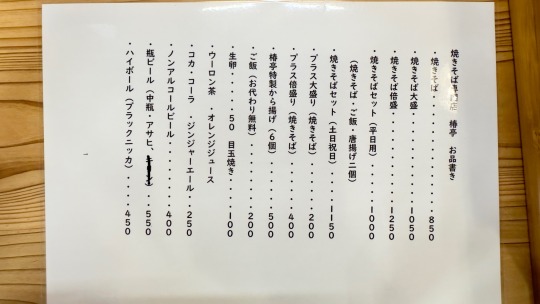 焼きそば専門店　椿亭　お品書き
・焼きそば・・・・・・・・・・・・・850
・焼きそば大盛・・・・・・・・・・・1050
・焼きそば倍盛・・・・・・・・・・・1250
・焼きそばセット（平日用）・・・・・1000
（焼きそば・ご飯・唐揚げ二個）
・焼きそばセット（土日祝日）・・・・1150
・プラス大盛り（焼きそば）・・・・・200
・プラス倍盛り（焼きそば）・・・・・400
・椿亭特製から揚げ（6個）・・・・・500
・ご飯（お代わり無料）・・・・・・・200
・生卵・・・・・50　目玉焼き・・・・100
・ウーロン茶　・オレンジジュース
・コカ・コーラ　・ジンジャーエール・・250
・ノンアルコールビール・・・・・・・400
・瓶ビール（中瓶・アサヒ、）・・550
・ハイボール（ブラックニッカ）・・・・450